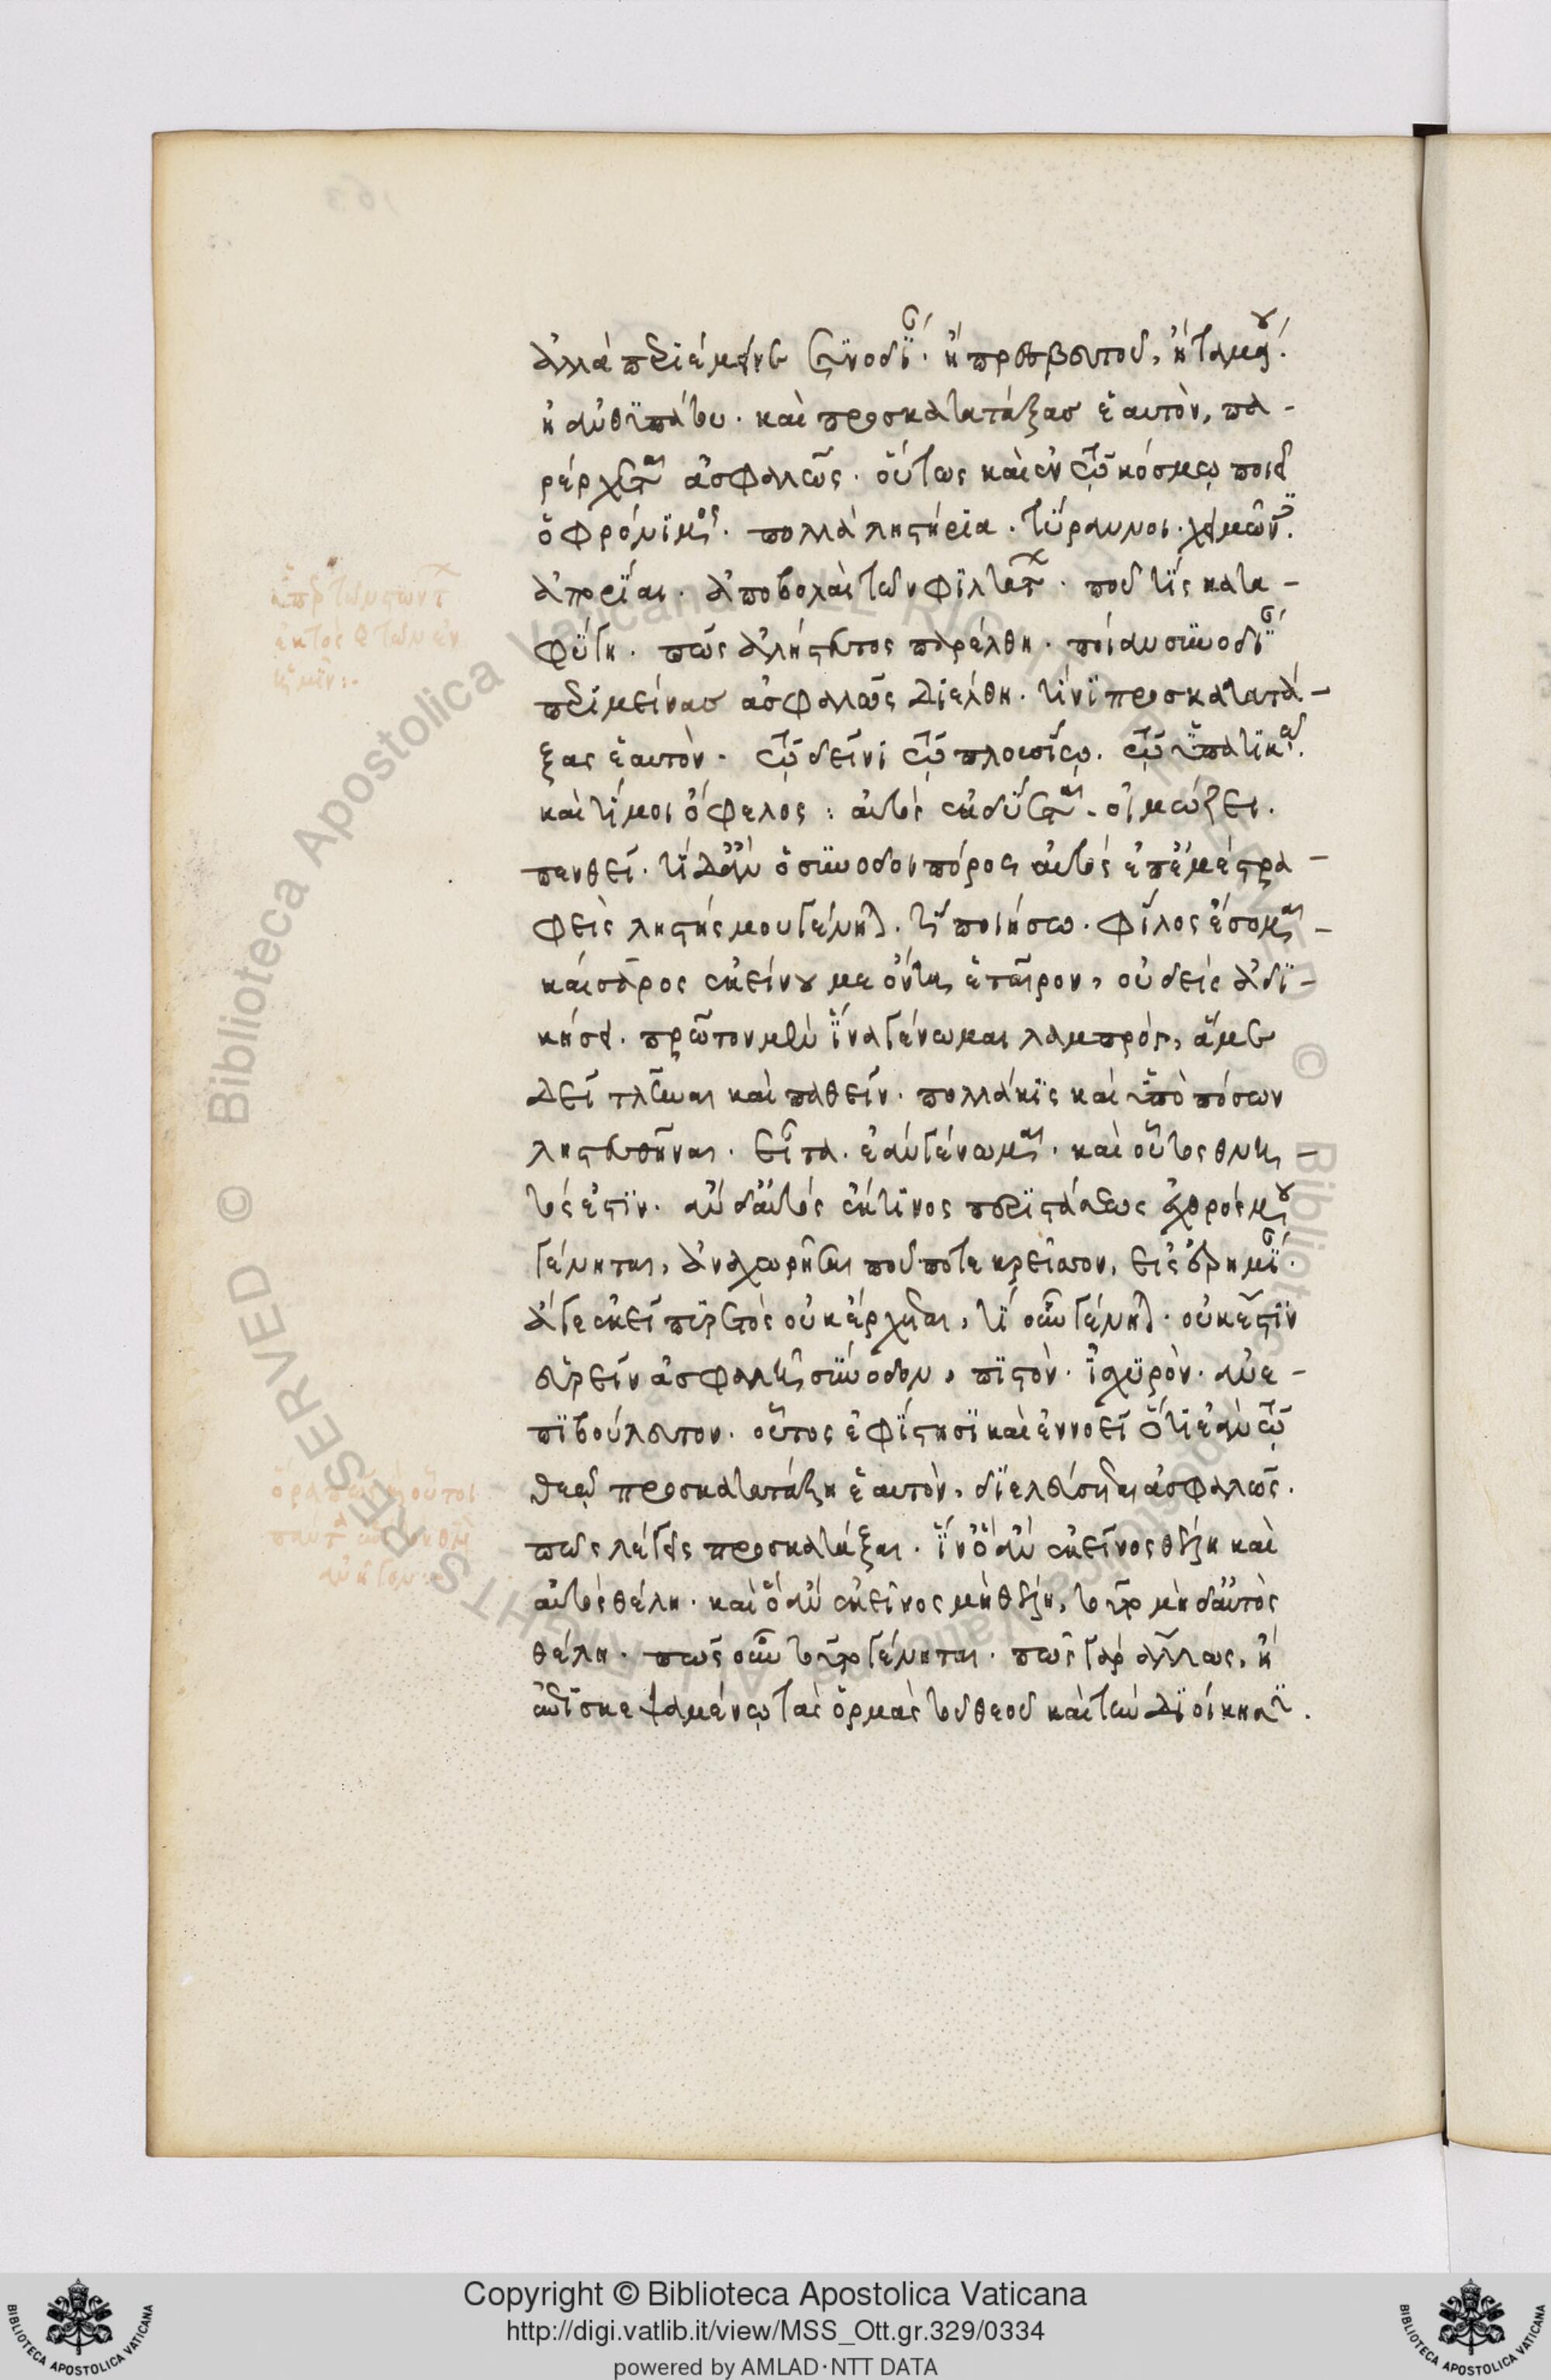 ἀλλὰ περιέμεινε συνοδίαν. ἢ πρεσβευτοῦ, ἢ ταμίου.
ἢ ἀνθυπάτου. καὶ προσκατατάξας ἑαυτὸν, πα-
ρέρχεται ἀσφαλῶς. οὕτως καὶ ἐν τῷ κόσμῳ ποιεῖ
ὁ φρόνιμος. πολλὰ λῃστήρια. τύραννοι. χειμῶνες.
ἀπορίαι. ἀποβολαὶ τῶν φιλτάτων. ποῦ τίς κατα-
φύγῃ. πῶς ἀλῄστευτος παρέλθῃ. ποίαν συνοδίαν
περιμείνας ἀσφαλῶς διέλθῃ. τίνι προσκατατά-
ξας ἑαυτὸν. τῷ δεῖνι τῷ πλουσίῳ. τῷ ὑπατικῷ.
καὶ τί μοι ὄφελος: αὐτὸς ἐκδύεται. οἰμώζει.
πενθεῖ. τί δ' ἂν ὁ συνοδοιπόρος αὐτὸς ἐπ' ἐμὲ στρα-
φεὶς λῃστής μου γένηται. τί ποιήσω. φίλος ἔσομαι
καίσαρος ἐκείνου με ὄντα ἑταῖρον, οὐδεὶς ἀδι-
κήσει. πρῶτον μὲν ἵνα γένωμαι λαμπρὸς, ἅ με
δεῖ τλῆναι καὶ παθεῖν. πολλάκις καὶ ὑπὸ πόσων
λῃστευθῆναι. εἶτα. ἐὰν γένωμαι. καὶ οὗτος θνη-
τός ἐστιν. ἂν δ' αὐτὸς ἔκ τινος περιστάσεως ἐχθρός μου
γένηται, ἀναχωρῆσαι πού ποτε κρεῖσσον, εἰς ἐρημίαν.
ἄγε ἐκεῖ πυρετὸς οὐκ ἔρχεται, τί οὖν γένηται. οὐκ ἔστιν
εὑρεῖν ἀσφαλῆ σύνοδον, πιστὸν. ἰσχυρὸν. ἀνε-
πιβούλευτον. οὗτος ἐφίστησι καὶ ἐννοεῖ ὅτι ἐὰν τῷ
θεῷ προσκατατάξῃ ἑαυτὸν, διελεύσεται ἀσφαλῶς.
πῶς λέγεις προσκατάξαι. ἵν' ὃ ἂν ἐκεῖνος θέλῃ καὶ
αὐτὸς θέλῃ. καὶ ὃ ἂν ἐκεῖνος μὴ θέλῃ, τοῦτο μηδ' αὐτὸς
θέλῃ. πῶς οὖν τοῦτο γένηται. πῶς γὰρ ἄλλως, ἢ
ἐπισκεψαμένῳ τὰς ὁρμὰς τοῦ θεοῦ καὶ τὴν διοίκησιν.
Copyright © Biblioteca Apostolica Vaticana
http://digi.vatlib.it/view/MSS_Ott.gr.329/0334
powered by AMLAD·NTT DATA